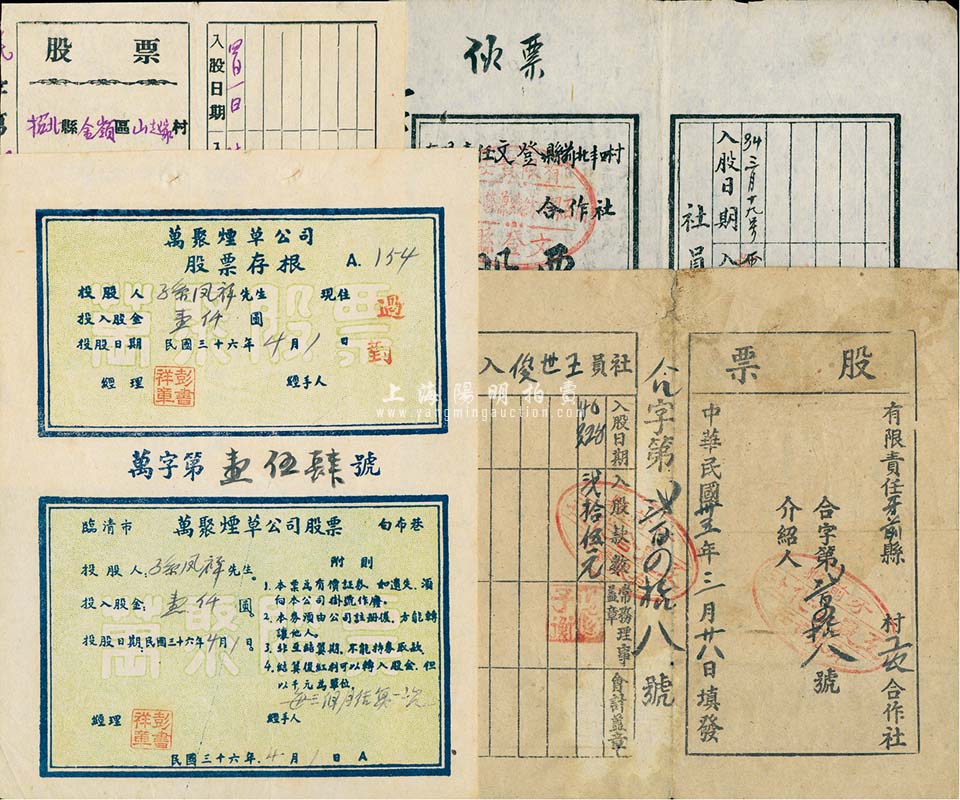 股票
招北縣金嶺區山趙家村
入股日期
四月一日
伙票
任文登縣前北丰村
合作社
入股日期
34 三月十九号
社員
萬聚煙草公司
股票存根 A. 154
投股人 孫凤祥先生 現住
投入股金 壹仟圓
投股日期 民國三十六年4月1日
過對
經理 彭書祥章 經手人
萬字第壹伍肆號
臨清市 萬聚煙草公司股票 白布巷
投股人 孫凤祥先生
投入股金: 壹仟圓
投股日期 民國三十六年4月1日
經理 彭書祥章 經手人
附則
1. 本票為有價証券 如遺失、須向本公司掛號作廢。
2. 本券須由公司註冊後、方能轉讓他人。
3. 非至結算期、不能持券取款、
4. 結算後紅利可以轉入股金、但以千元為單位
每三個月结算一次
民國三十六年.4月1日 A
社員王世俊入
入股日期
46 3.28
入股款數
弍拾伍元
常務理事蓋章
會計蓋章
合字第弍百四拾八號
股票
有限責任牙前縣 村 合作社
合字第 拾八號
介紹人
中華民國卅五年三月廿八日填發
上海陽明拍賣
www.yangmingauction.com